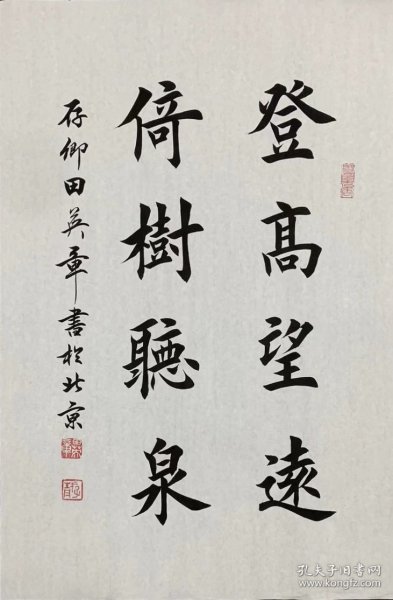 登高望遠
倚樹聽泉
存卿田英章書於北京
孔夫子旧书网
www.kongfz.com